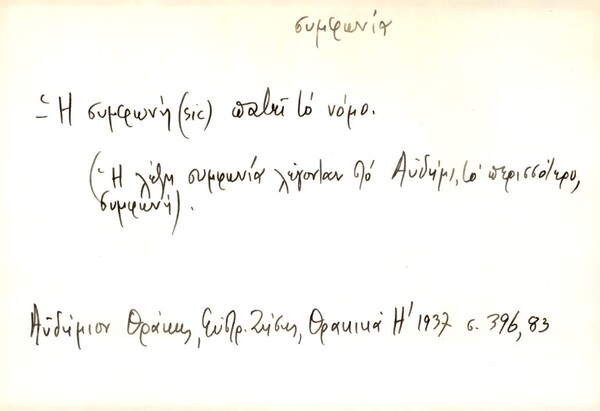 συμφωνία
- Ἡ συμφωνή (sic) πατεῖ τό νόμο.
(Ἡ λέξη συμφωνία λέγονταν στό Αὐδήμι, τό περισσότερο,
συμφωνή).
Αὐδήμιον Θράκης, Εὐστρ. Ζήσης, Θρακικά Η' 1937 σ. 396, 83